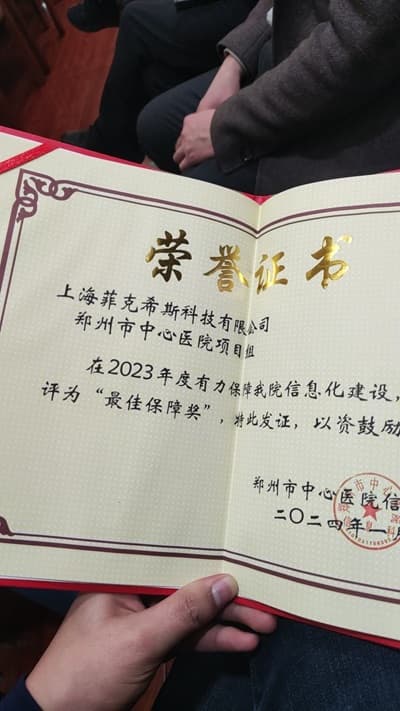 荣誉证书
上海菲克希斯科技有限公司
郑州市中心医院项目组
在2023年度有力保障我院信息化建设，
评为“最佳保障奖”，特此发证，以资鼓励
郑州市中心医院信
二〇二四年一月